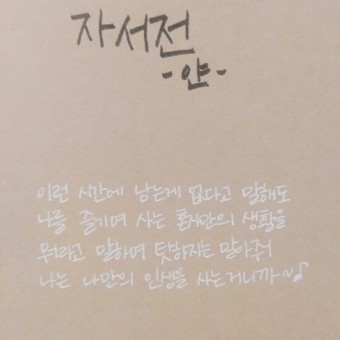 자서전
-얀-
이런 시간에 남는게 없다고 말해도
나를 즐기며 사는 혼자만의 생활을
뭐라고 말하며 탓하지는 말아줘
나는 나만의 인생을 사는거니까~♪